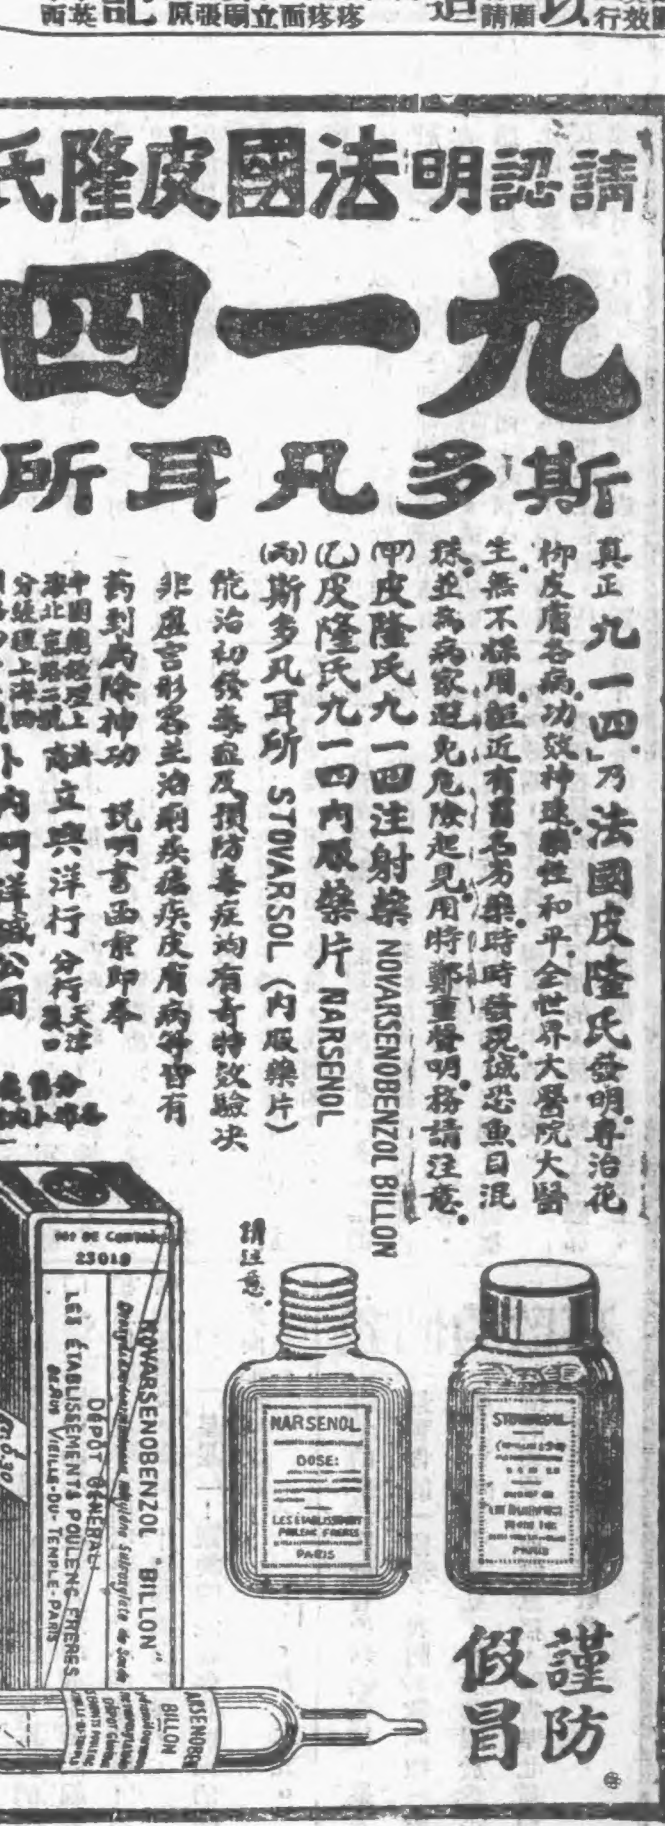 請認明法國皮隆氏
九一四
斯多凡耳所
真正九一四乃法國皮隆氏發明專治花
柳皮膚各病功效神速藥性和平全世界大醫院大醫
生無不採用詎近有冒名劣藥時時發現誠恐魚目混
珠並為病家避免危險起見用特鄭重聲明務請注意
(甲)皮隆氏九一四注射藥 NOVARSENOBENZOL BILLON
(乙)皮隆氏九一四內服藥片 NARSENOL
(丙)斯多凡耳所 STOVARSOL (內服藥片)
能治初發毒症及預防毒症均有奇特效驗决
非虛言形容並治痢疾瘧疾皮膚病等皆有
药到病除神功 說明書函索即奉
中國總經理上海
北京路二號
立興洋行
分行天津
漢口
分經理上海四
請注意
NARSENOL
DOSE:
LES ÉTABLISSEMENT
POULENC FRERES
PARIS
PARIS
23019
NOVARSENOBENZOL "BILLON"
DÉPÔT GÉNÉRAL:
LES ÉTABLISSEMENTS POULENC FRÈRES
RUE VIEILLE-DU-TEMPLE-PARIS
BILLON
謹防
假冒